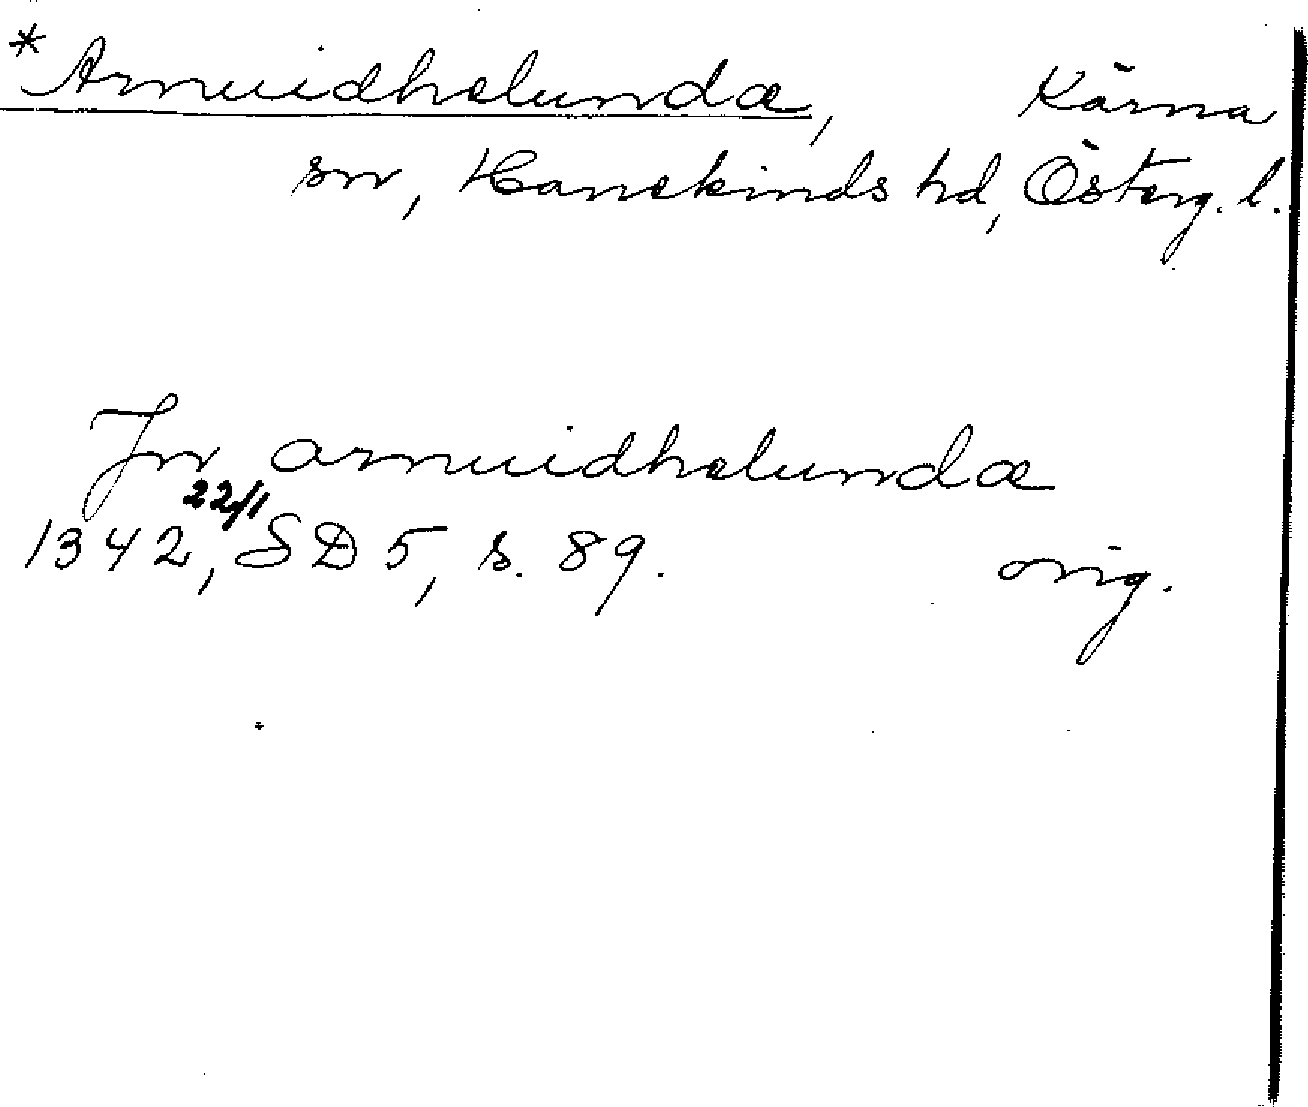 *Arnuidhelundæ, Kärna
sn, Hanekinds hd, Österg. l.
Jn arnuidhelundæ
1342 22/1, SD 5, s. 89. orig.